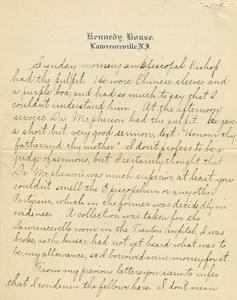 Kennedy House.
Lawrenceville, N.J.
Sunday morning an Episcopal Bishop
had the pulpit. He wore Chinese sleeves and
a purple boa, and had so much to say that I
couldn't understand him. At the afternoon
service Dr. McPherson had the pulpit. He gave
a short but very good sermon, text "Honour thy
father and thy mother" I don't profess to be a
judge of sermons, but I certainly thought that
Dr. McPherson's was much superior, at least you
couldn't smell the Episcopalism or any other
, which in the former was decidedly in
evidence. A collection was taken for the
Lawrenceville room in the Trenton hospital; I was
broke, as the bursar had not yet heard what was to
be my allowance, so I borrowed some money for it.
From my previous letters you seem to infer
that I condemn the fellows here. I don't mean